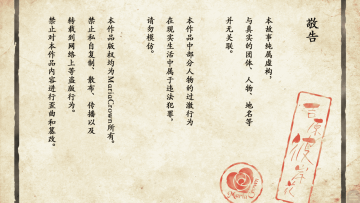 敬告
本故事纯属虚构，
与真实的团体、人物、地名等
并无关联。
本作品中部分人物的过激行为
在现实生活中属于违法犯罪，
请勿模仿。
本作品版权均为MariaCrown所有。
禁止私自复制、散布、传播以及
转载到网络上等盗版行为。
禁止对本作品内容进行歪曲和篡改。
吉原彼岸花